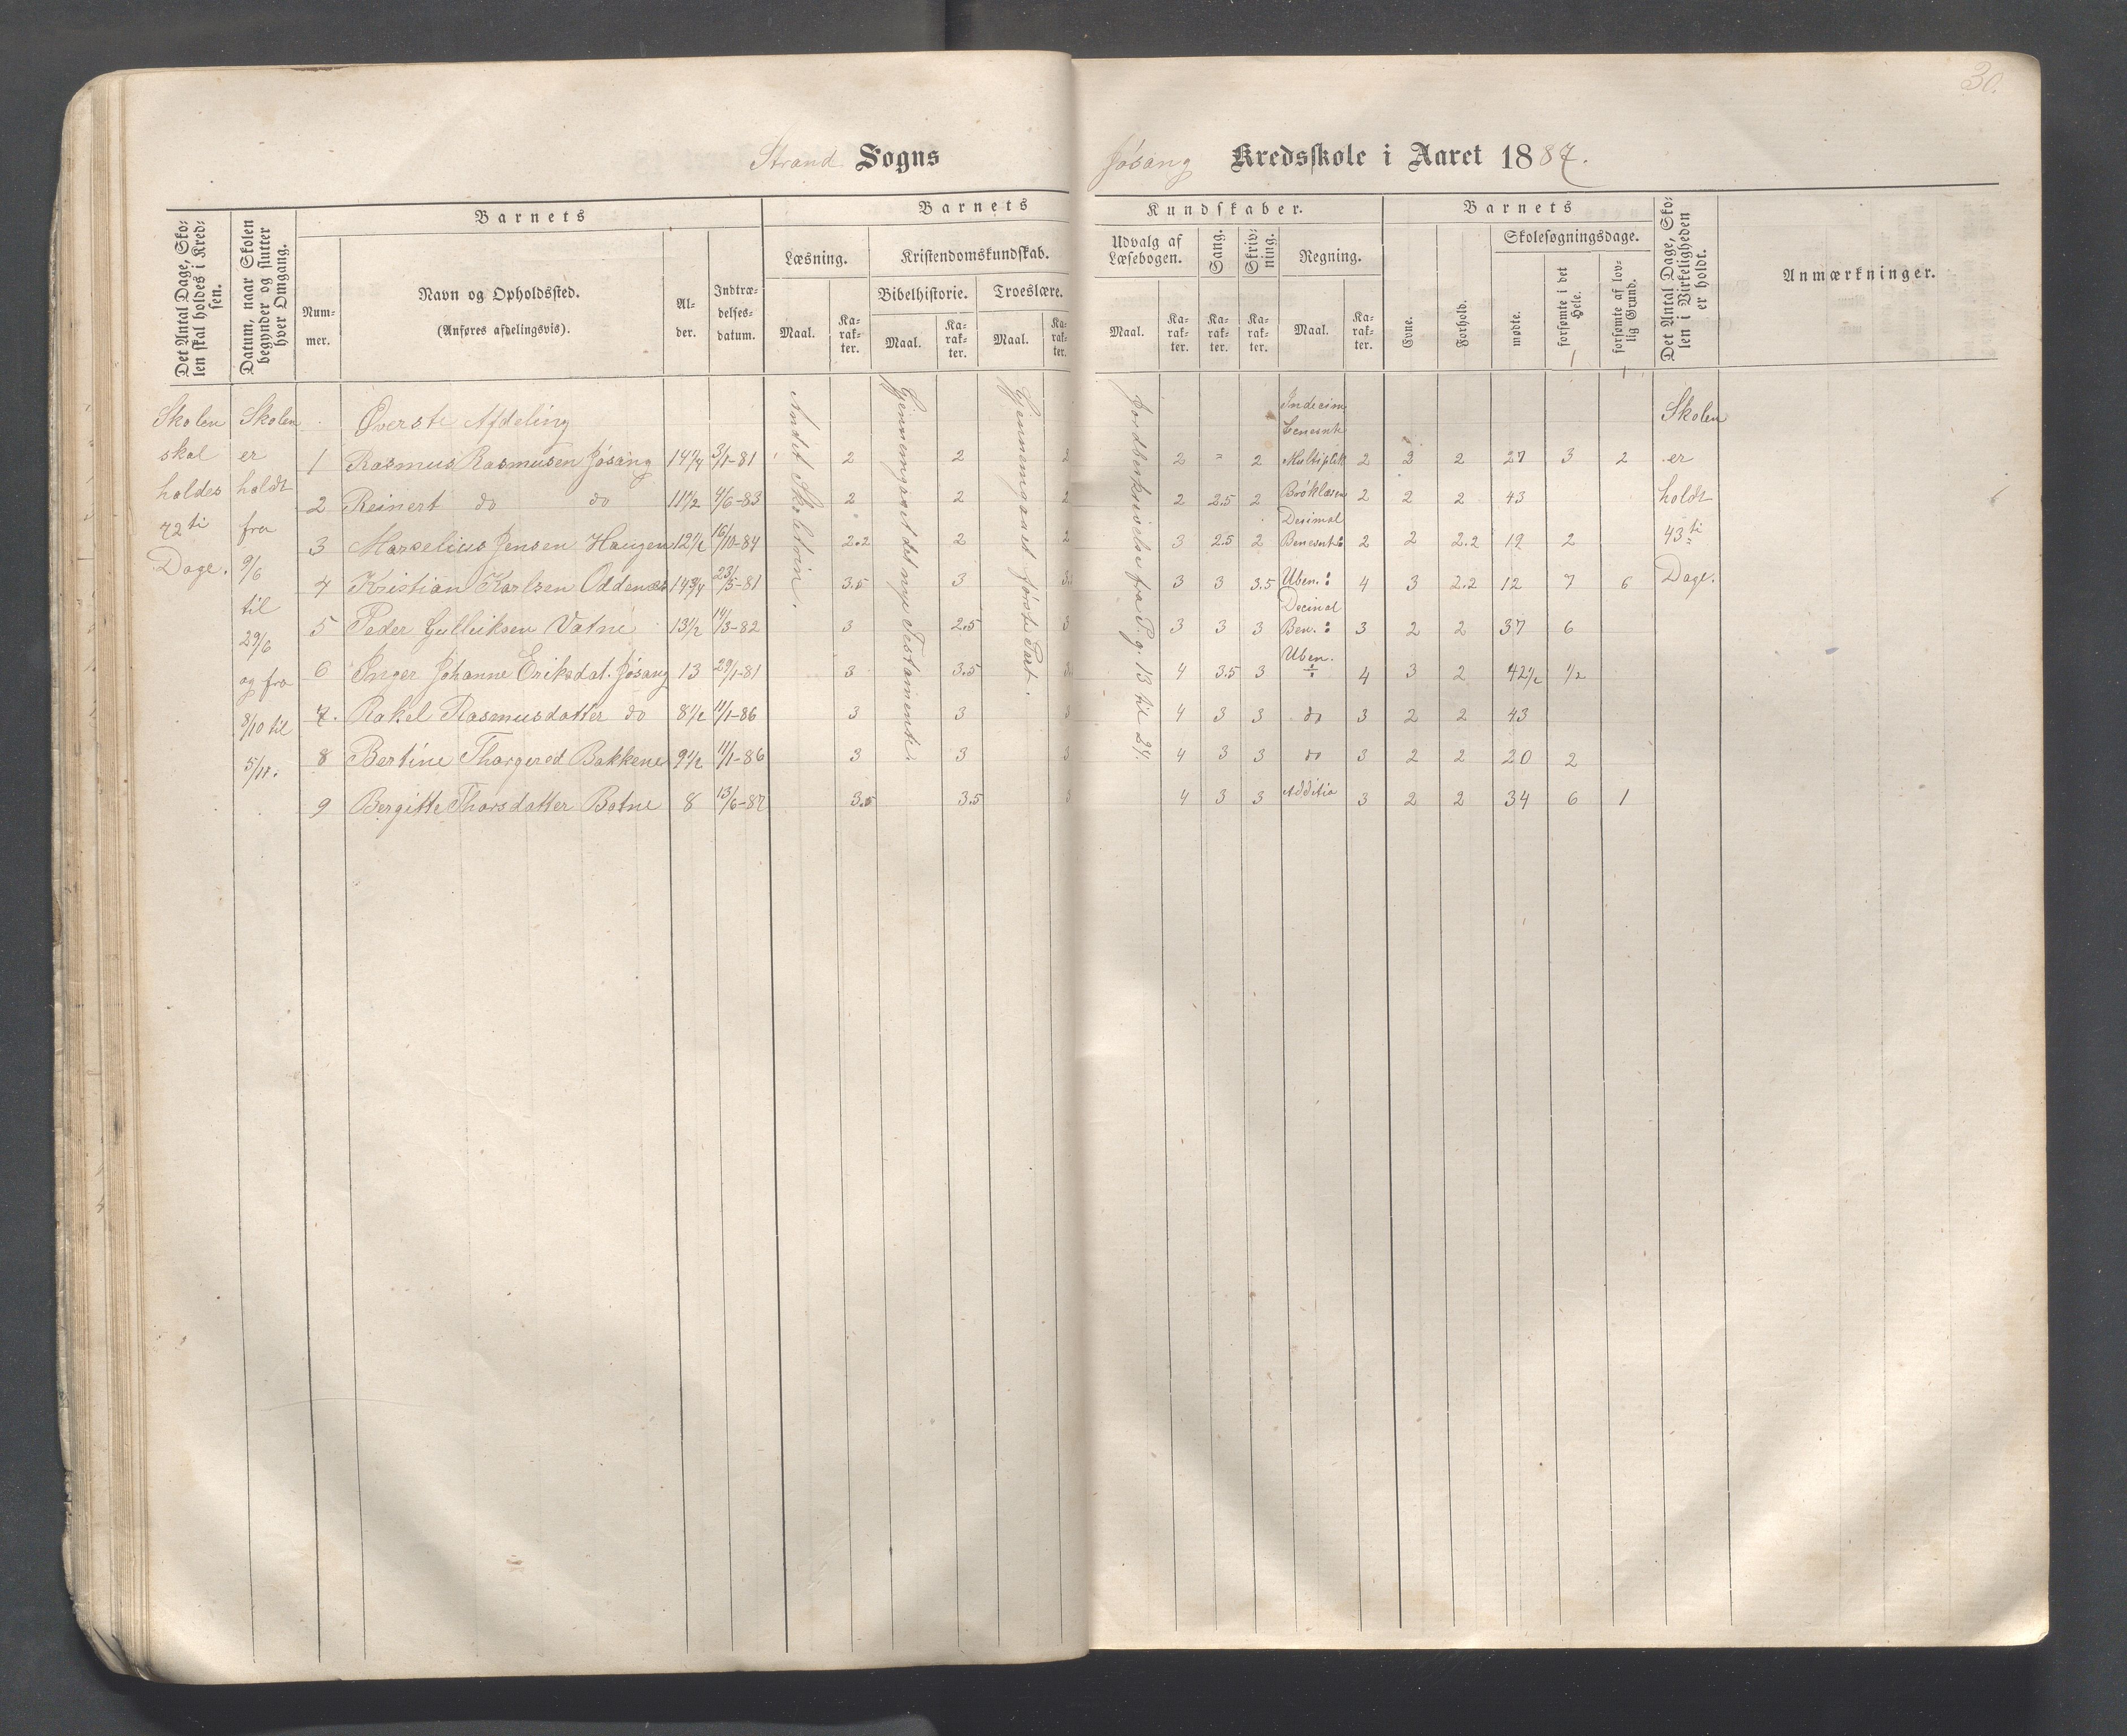 30.
Strand Sogns
Jøsang Kredsskole i Aaret 1887.
Det Antal Dage, Skolen skal holdes i Kredsen.
Datum, naar Skolen begynder og slutter hver Omgang.
Barnets
Num-
mer.
Navn og Opholdssted.
(Anføres afdelingsvis).
Al-
der.
Indtræ-
delses-
datum.
Barnets
Læsning.
Maal.
Ka-
rak-
ter.
Kristendomskundskab.
Bibelhistorie.
Maal.
Ka-
rak-
ter.
Troeslære.
Maal.
Ka-
rak-
ter.
Kundskaber.
Udvalg af
Læsebogen.
Maal.
Ka-
rak-
ter.
Sang.
Ka-
rak-
ter.
Skriv-
ning.
Ka-
rak-
ter.
Regning.
Maal.
Ka-
rak-
ter.
Barnets
Evne.
Forhold.
Skolesøgningsdage.
mødte.
forsømte i det
Hele.
forsømte af lov-
lig Grund.
Det Antal Dage, Sko-
len i Virkeligheden
er holdt.
Anmærkninger.
Skolen
skal
holdes
72 ti
Dage.
Skolen
er
holdt
fra
9/6
til
29/6
og fra
8/10 til
5/11.
Øverste Afdeling
Andet Skoletrin.
Gjennemgaaet det nye Testamente.
Gjennemgaaet første Part.
Jordbeskrivelse fra Pg. 13 til 24.
1 Rasmus Rasmusen Jøsang 14 1/4 3/1-81 2 2 2 2 = 2 Multiplik 2 2 2 27 3 2
2 Reinert do do 11 1/2 4/6-83 2 2 2 2 2.5 2 Brøklæsen 2 2 2 43
3 Marselius Jensen Haugen 12 1/2 16/10-84 2.2 2 2 3 2.5 2 Desimal Benesnt: 2 2 2.2 19 2
4 Kristian Karlsen Oddenes 14 3/4 23/5-81 3.5 3 3. 3 3 3.5 Uben.: 4 3 2.2 12 7 6
5 Peder Gulliksen Vatne 13 1/2 14/3-82 3 2.5 3 3 3 3 Decimal Ben.: 3 2 2 37 6
6 Inger Johanne Eriksdat. Jøsang 13 29/1-81 3 3.5 3. 4 3.5 3 Uben. ÷ 4 3 2 42 1/2 1/2
7. Rakel Rasmusdatter do 8 1/2 11/1-86 3 3 3 4 3 3 do 3 2 2 43
8 Bertine Thorgersd Bakkene 9 1/2 11/1-86 3 3 3 4 3 3 do 3 2 2 20 2
9 Bergitte Thorsdatter Botne 8 13/6-87 3.5 3.5 3 4 3 3 Additio 3 2 2 34 6 1
Skolen
er
holdt
43 ti
Dage.